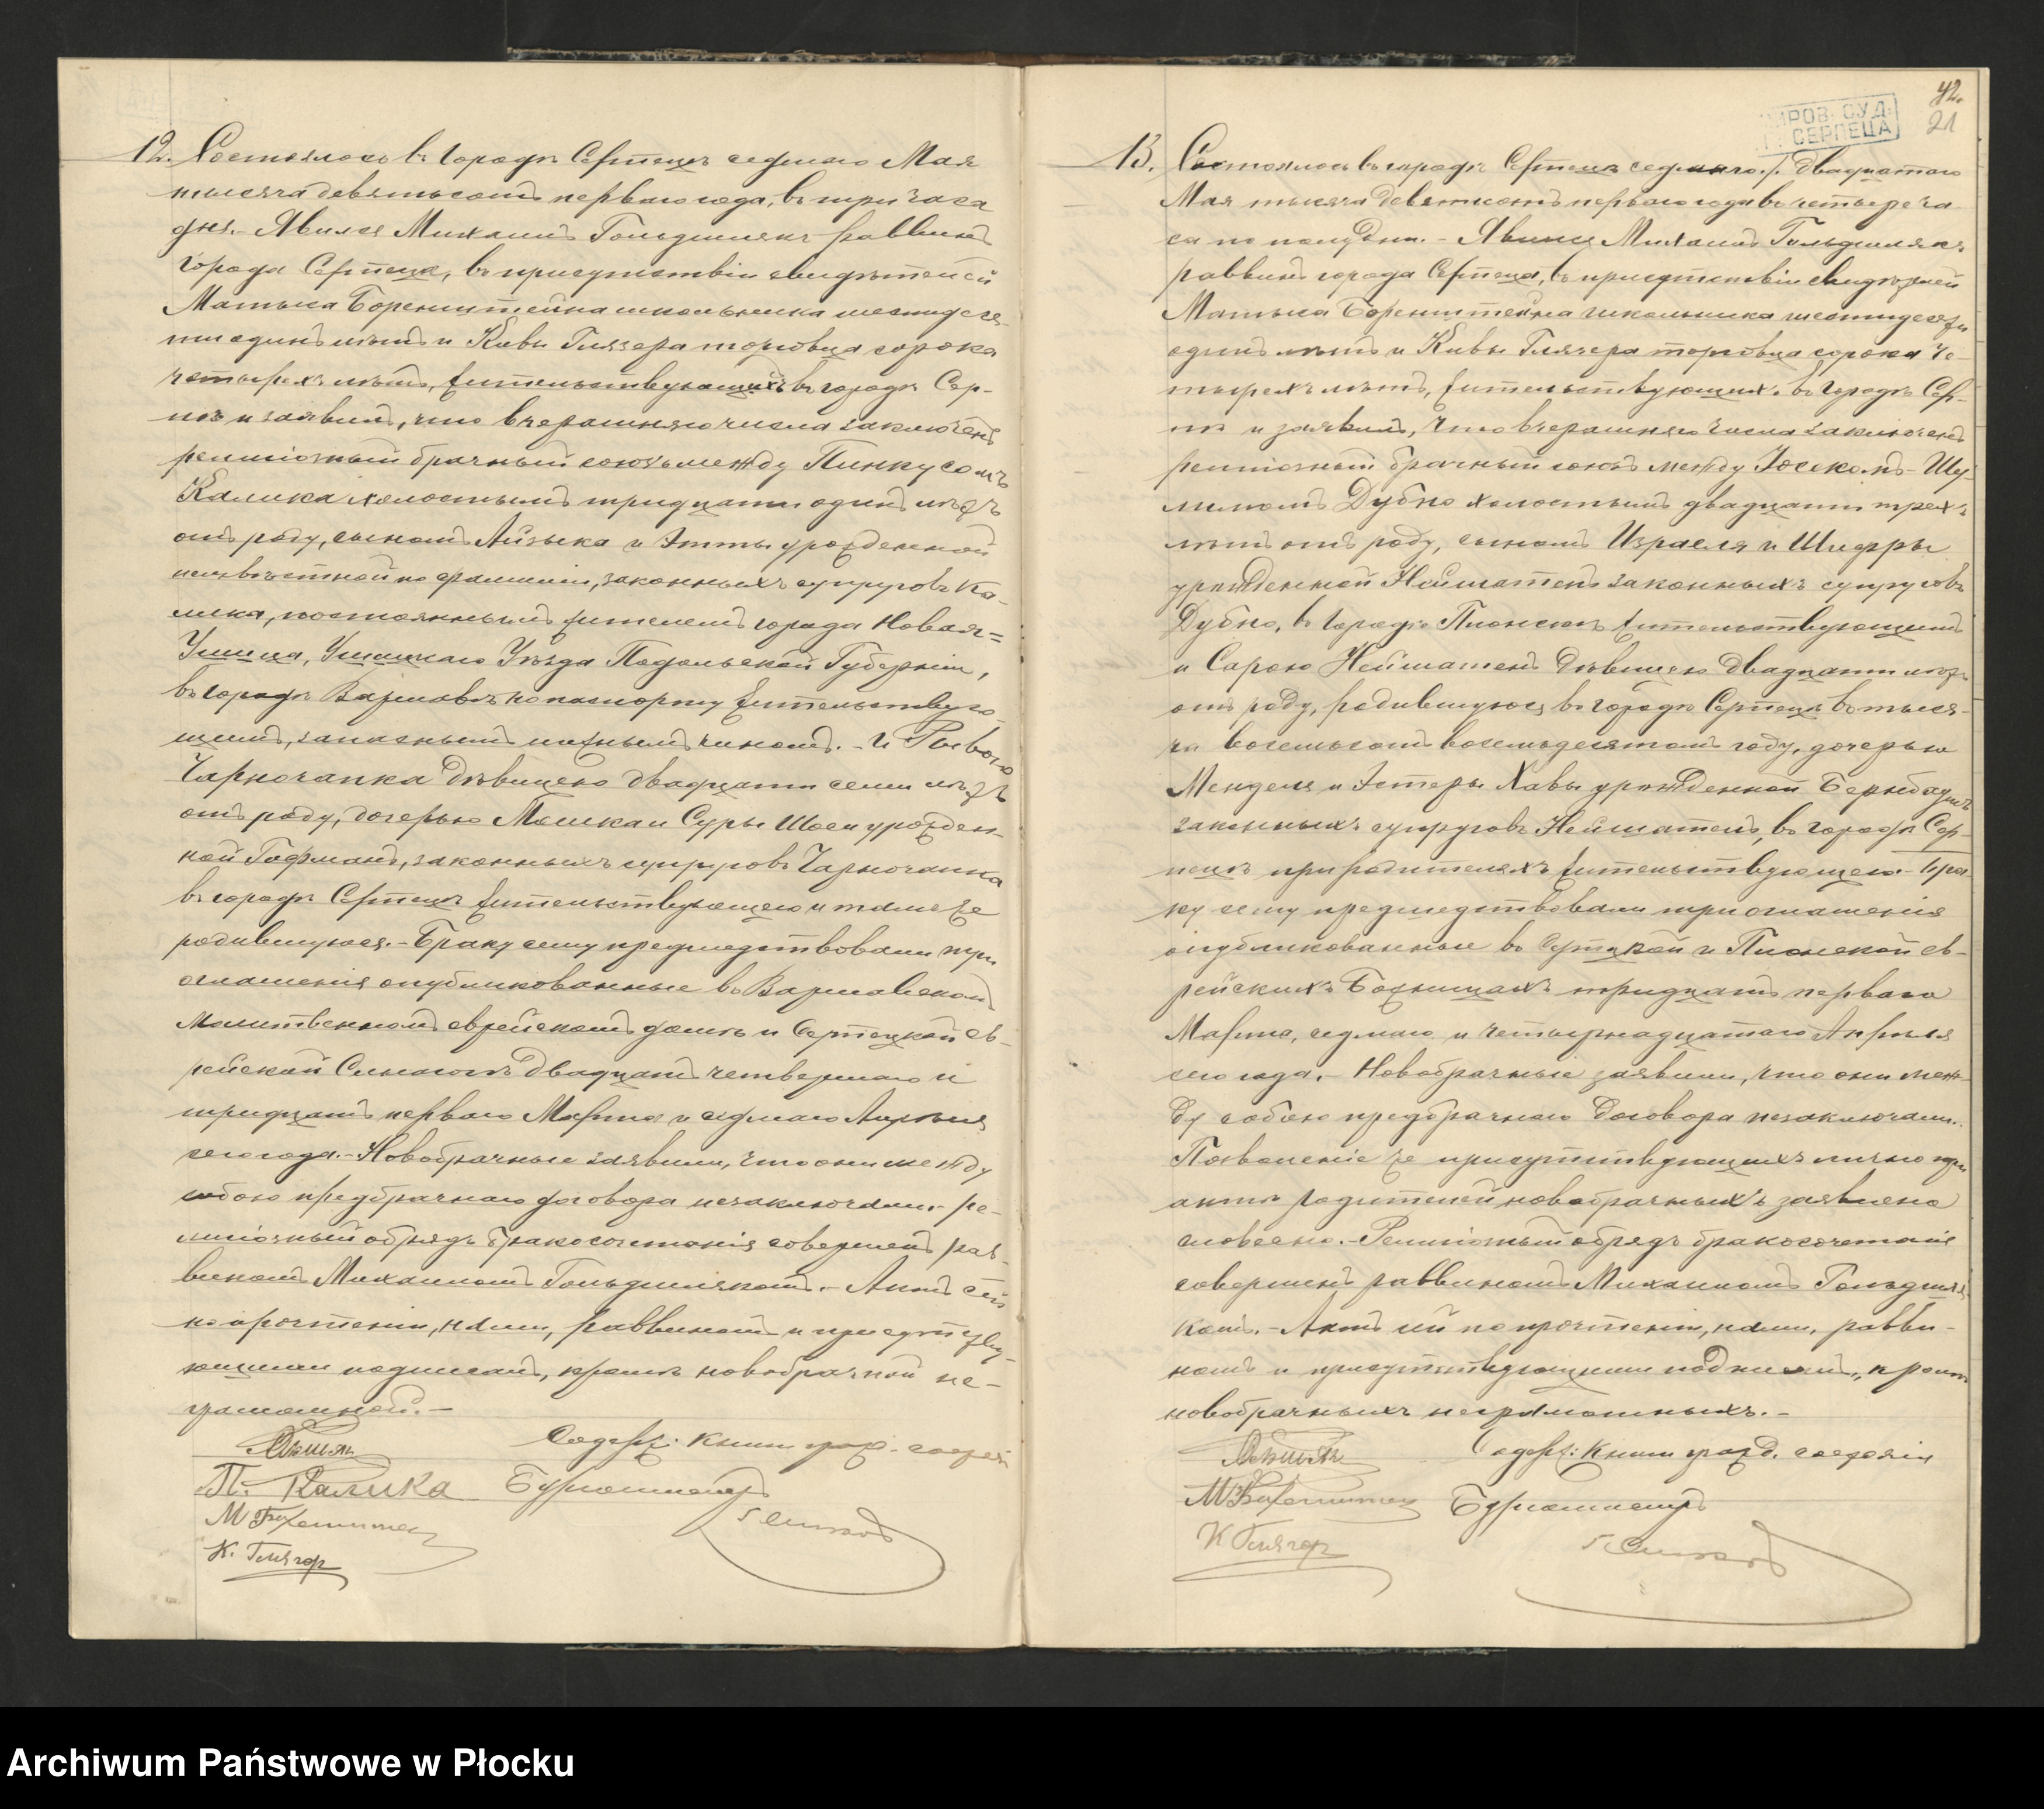 12. Состоялось въ городѣ Серпецѣ седьмаго Мая
тысяча девятьсотъ перваго года, въ три часа
дня. – Явился Михаилъ Гольдшлякъ раввинъ
города Серпеца, въ присутствіи свидѣтелей
Матыса Боренштейна школьника шестидеся-
ти одинъ лѣтъ и Кивы Глязера торговца сорока
четырехъ лѣтъ, жительствующихъ въ городѣ Сер-
пцѣ и заявилъ, что вчерашняго числа заключенъ
религіозный брачный союзъ между Пинкусомъ
Калика холостымъ тридцати одинъ лѣтъ
отъ роду, сыномъ Айзыка и Этты урожденной
неизвѣстной по фамиліи, законныхъ супруговъ Ка-
лика, постояннымъ жителемъ города Новая=
Ушица, Ушицкаго Уѣзда Подольской Губерніи,
въ городѣ Варшавѣ по паспорту жительствую-
щимъ, запаснымъ нижнимъ чиномъ. – и Рывкою
Чарночапка дѣвицею двадцати семи лѣтъ
отъ роду, дочерью Мошка и Суры Шоси урожден-
ной Гофманъ, законныхъ супруговъ Чарночапка
въ городѣ Серпецѣ жительствующею и тамъ же
родившуюся. – Браку сему предшедствовали три
оглашенія опубликованные въ Варшавскомъ
молитвенномъ еврейскомъ домѣ и Серпецкой Ев-
рейской Синагогѣ двадцать четвертаго и
тридцать перваго Марта и седмаго Апрѣля
сего года. – Новобрачные заявили, что они между
собою предбрачнаго договора незаключали. Ре-
лигіозный обрядъ бракосочетанія совершенъ рав-
виномъ Михаиломъ Гольдшлякомъ. – Актъ сей
по прочтеніи, нами, раввиномъ и присутству-
ющими подписанъ, кромѣ новобрачной не-
грамотной. –
Содерж: Книги гражд. состоян
П. Калика Бургомистръ
М Боренштейн
К. Глязер
42.
21
МИРОВ. СУД.
СЕРПЕЦА
13. Состоялось въ городѣ Серпецѣ седьмаго /: двадцатаго
Мая тысяча девятисотъ перваго года въ четыре ча-
са по полудни. – Явился Михаилъ Гольдшлякъ
раввинъ города Серпеца, въ присутствіи свидѣтелей
Матыса Боренштейна школьника шестидесяти
одинъ лѣтъ и Кивы Глязера торговца сорока че-
тырехъ лѣтъ, жительствующихъ въ городѣ Сер-
пцѣ и заявилъ, что вчерашняго числа заключенъ
религіозный брачный союзъ между Іосекомъ – Шу-
лимомъ Дубно холостымъ двадцати трехъ
лѣтъ отъ роду, сыномъ Израеля и Шифры
урожденной Нейшатенъ законныхъ супруговъ
Дубно, въ городѣ Плонскѣ жительствующимъ
и Сарою Нейшатенъ дѣвицею двадцати лѣтъ
отъ роду, родившуюся въ городѣ Серпецѣ въ тыся-
ча восемьсотъ восемьдесятомъ году, дочерью
Менделя и Эстеры Хавы урожденной Бернбаумъ
законныхъ супруговъ Нейшатенъ, въ городѣ Сер-
пецѣ при родителяхъ жительствующею. – Бра-
ку сему предшедствовали три оглашенія
опубликованные въ Серпецкой и Плонской ев-
рейскихъ Божницахъ тридцать перваго
Марта, седмаго и четырнадцатаго Апрѣля
сего года. – Новобрачные заявили, что они меж-
ду собою предбрачнаго договора незаключали.
Позволеніе же присутствующихъ лично при
актѣ родителей новобрачныхъ заявлено
словесно. – Религіозный обрядъ бракосочетанія
совершенъ раввиномъ Михаиломъ Гольдшля-
комъ. – Актъ сей по прочтеніи, нами, равви-
номъ и присутствующими подписанъ, кромѣ
новобрачныхъ неграмотныхъ. –
Содерж: Книги гражд. состоянія
М Боренштейн Бургомистръ
К Глязер
Archiwum Państwowe w Płocku